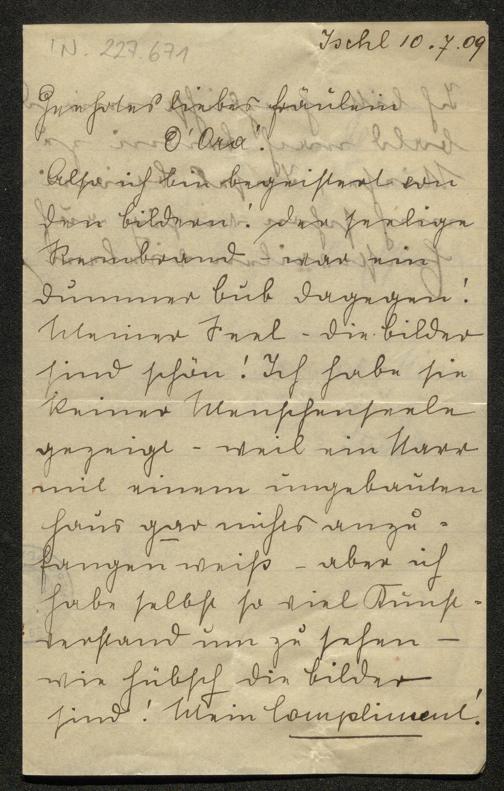 IN. 227.671
Ischl 10.7.09
Geehrtes liebes Fräulein
D'Ora!
Also ich bin begeistert von
den Bildern! der seelige
Rembrand - war ein
dummer bub dagegen!
Meiner Seel - die bilder
sind schön! Ich habe sie
keiner Menschenseele
gezeigt - weil ein Narr
mit einem ungebauten
haus gar nichts anzu-
fangen weiß - aber ich
habe selbst so viel Kunst-
verstand um zu sehen -
wie hübsch die bilder
sind! Mein Compliment!